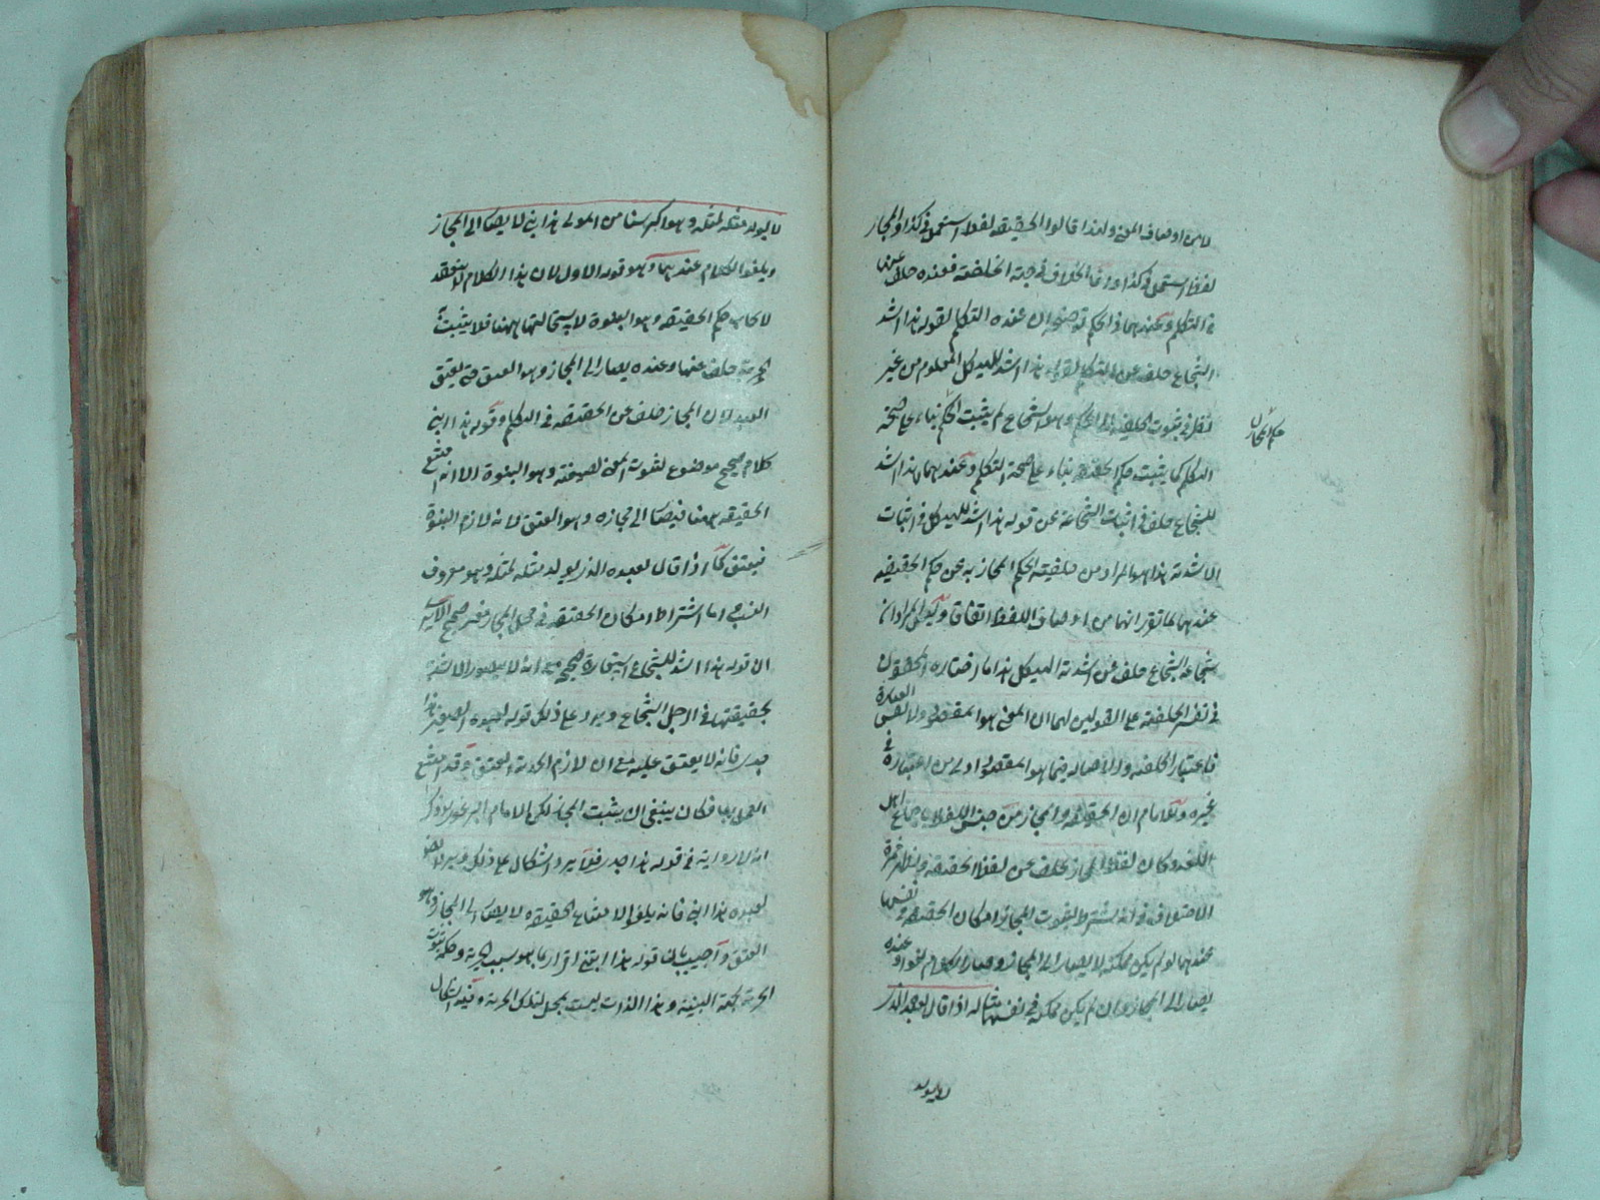 لا من اوصاف المعنى ولهذا قالوا الحقيقة لفظ استعمل في كذا والمجاز
لفظ استعمل في كذا وانما الخلاف في جهة الخلفية فعنده خلف عنها
في التكلم وعندهما في الحكم توضيحه ان عنده التكلم لقوله هذا اسد
للشجاع خلف عن التكلم لقوله هذا اسد للهيكل المعلوم من غير
نظر في ثبوت الخلفية الى الحكم وهو الشجاع ثم يثبت الحكم بناء على صحة
حكم المجاز
التكلم كما يثبت حكم الحقيقة بناء على صحة التكلم وعندهما هذا اسد
للشجاع خلف في اثبات الشجاعة عن قوله هذا اسد للهيكل في اثبات
الاسدية هذا هو المراد من خلفية الحكم المجاز به عن حكم الحقيقة
عندهما لما تقرر انهما من اوصاف اللفظ اتفاقا المراد ان
شجاعة الشجاع خلف عن اسدية الهيكل هذا ما اختاره المحققون
في تفسير الخلفية على القولين لهما ان المعنى هو المقصود ولا نفس العبارة
فاعتبار الخلفية والاصالة فيما هو المقصود اولى من اعتباره في
غيره وللامام ان الحقيقة والمجاز من جنس اللفظ باجماع اهل
اللغة وكان لفظ المجاز خلف عن لفظ الحقيقة ويظهر ثمرة
الاختلاف في انه يشترط لثبوت المجاز امكان الحقيقة في نفسها
عندهما لو لم يكن ممكنة لا يصار الى المجاز وصار الكلام لغوا وعنده
يصار الى المجاز وان لم يكن ممكنة في نفسها مثاله اذا قال لعبده الذي
لا يولد
لا يولد مثله لمثله وهو اكبر سنا من المولى هذا ابني لا يصار الى المجاز
ويلغو الكلام عندهما وهو قوله الاول لان هذا الكلام لم ينعقد
لايجاب حكم الحقيقة وهو البنوة لاستحالتها ههنا فلا يثبت
الحرية خلف عنها وعنده يصار الى المجاز وهو العتق حتى يعتق
العبد لان المجاز خلف عن الحقيقة في التكلم وقوله هذا ابني
كلام صحيح موضوع لثبوت المعنى لصيغته وهو البنوة الا انه امتنع
الحقيقة ههنا فيصار الى مجازه وهو العتق لانه لازم البنوة
فيعتق كما اذا قال لعبده الذي يولد مثله لمثله وهو معروف
النسب اما اشتراط امكان الحقيقة في محل المجاز فغير صحيح
ان قوله هذا اسد للشجاع استعارة صحيحة مع انه لا يتصور الاسدية
بحقيقتها في الرجل الشجاع ويرد على ذلك قوله لعبده الصغير هذا
جدي فانه لا يعتق عليه مع ان لازم الحرية والعتق وقد امتنع
العمل بها فكان ينبغي ان يثبت المجاز لكن الامام البرغري ذكر
انه لا رواية في قوله هذا جدي فلا يرد اشكال على ذلك
لعبده هذا ابني فانه يلغو لامتناع الحقيقة لا يصار الى المجاز وهو
العتق واجيب بان قوله هذا ابنتي اقرار بما هو سبب الحرية وحكمه ثبوت
الحرية بجهة البنتية وهذا الذات ليست بمحل لتلك الحرية وفيه اشكال